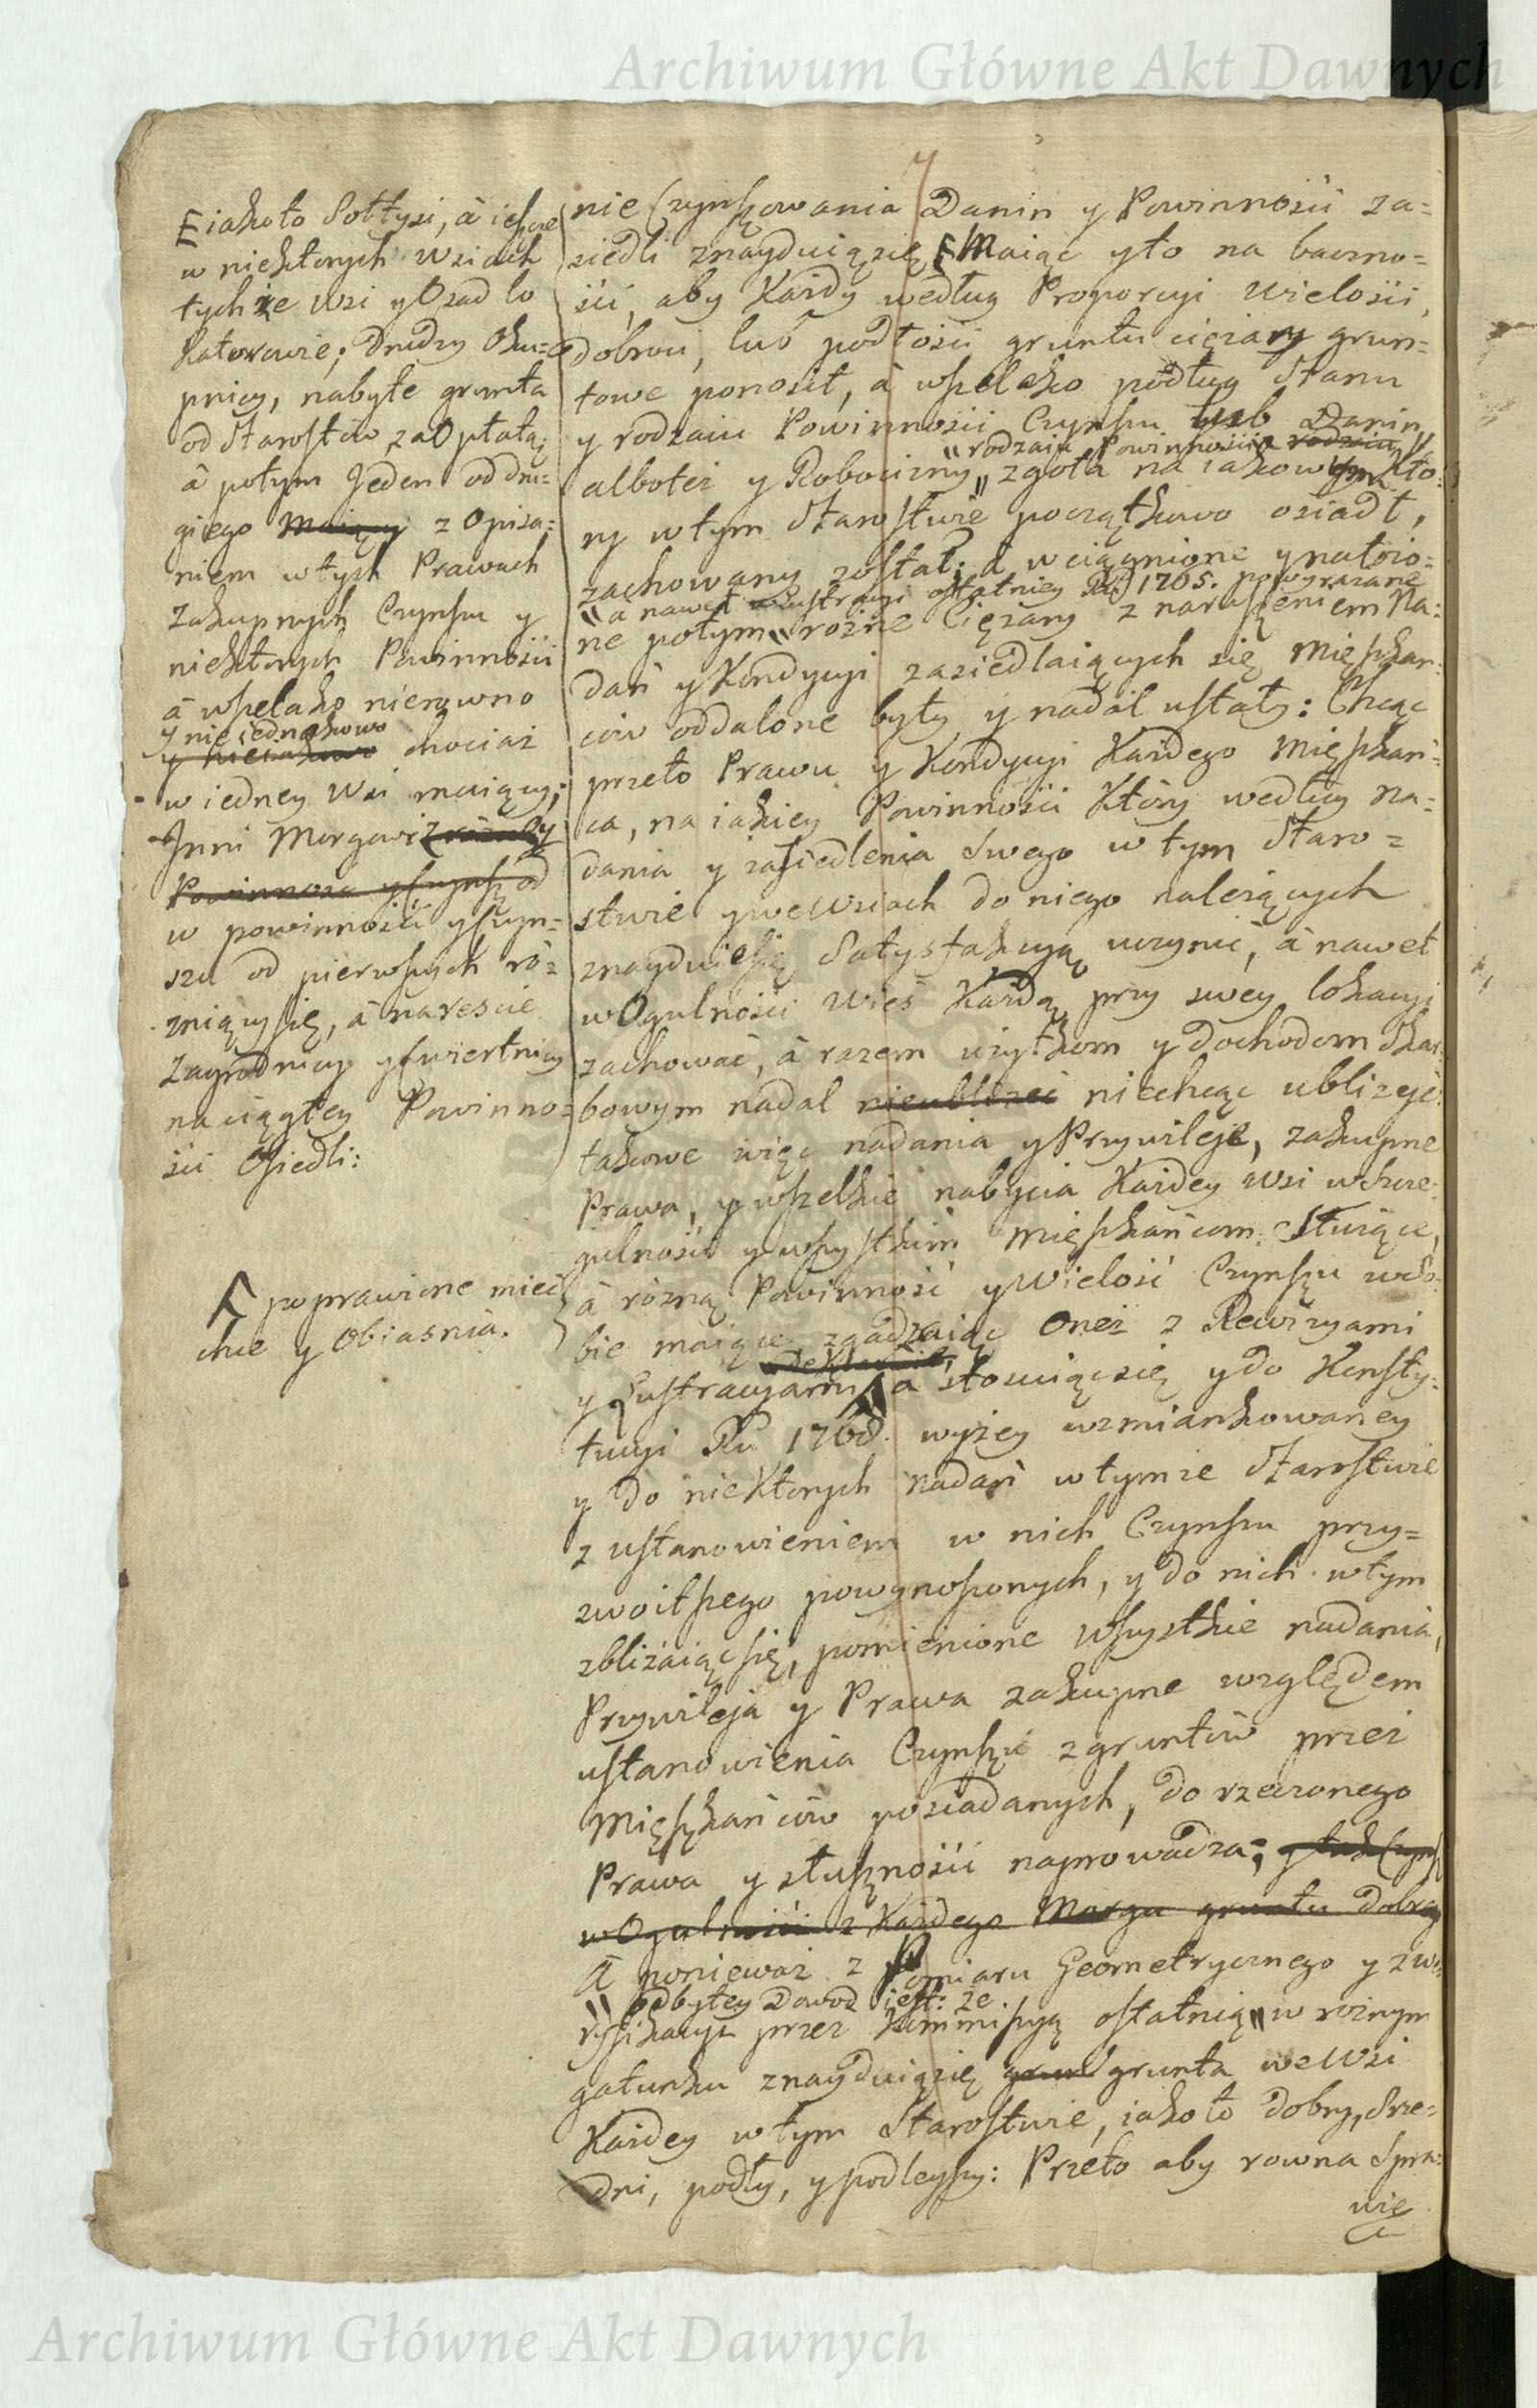 Archiwum Główne Akt Dawnych
iakoto Sołtysi, á ieszcze
w niektorych wsiach
tychże wsi y Osad lo
katorowie; drudzy Oku=
pnicy, nabyte grunta
od Starostow za Opłatą;
á potym Jeden od dru=
giego Maiący z Opisa=
niem w tych Prawach
Zakupnych Czynszu y
niektorych Powinnosci
á wszelako nierowno
y nie iednakowo
chociaż
w iedney Wsi maiący;
Inni Morgowi
Powinnosc y Czynsz od
w powinności y Czyn=
szu od pierwszych ró=
żniący się, á nareście
Zagrodnicy y Cwiertnicy
na ciągłey Powinno=
sci Osiedli:
poprawione mieć
chce y Obiasnia.
nie Czynszowania Danin y Powinności za=
siedli znayduią się Maiąc y to na baczno=
ści, aby Każdy według Proporcyi Wielości,
dobroci, lub podłości gruntu ciężary grun=
towe ponosił, á wszelako podług Stanu
y rodzaiu Powinności Czynszu lub Danin,
" rodzaiu Powinności
albo też y Robocizny " zgoła na iakowym kto=
ry w tym Starostwie początkowo osiadł,
zachowany został; á wciągnione y nałożo=
" á nawet w Lustracyi ostatniey Ru 1765. powyrażane
ne potym " rożne Ciężary z naruszeniem Na=
dań y Kondycyi zasiedlaiących się Mięszkań=
ców oddalone były y nadal ustały: Chcąc
przeto Prawu y Kondycyi Każdego Mięszkań=
ca, na iakiey Powinności Który według Na=
dania y zasiedlenia Swego w tym Staro=
stwie y we Wsiach do niego należących
znayduie się Satysfakcyą uczynić, á nawet
w Ogulności Wieś Każdą przy swey lokacyi
zachować, á razem użytkom y dochodom Skar=
bowym nadal nieubliżać niechcąc ubliżyć
takowe więc nadania y Przywileje, zakupne
Prawa, y wszelkie nabycia Każdey Wsi w szcze=
gulności y wszystkim Mięszkańcom Służące,
á rożną Powinność y Wielość Czynszu w So=
bie maiące, zgadzaiąc Oneż z Rewizyami
y Lustracyami á stosuiąc się y do Konsty=
tucyi Ru 1768. wyżey wzmiankowaney
y do niektorych nadań w tymże Starostwie
z ustanowieniem w nich Czynszu przy=
zwoitszego powynoszonych, y do nich w tym
zbliżaiąc się, pomienione Wszystkie nadania,
Przywileja y Prawa zakupne względem
ustanowienia Czynszu z gruntów przez
Mięszkańców posiadanych, do rzeczonego
Prawa y słuszności naprowadza; y tak Czynsz
w Ogulności z Każdego Morgu gruntu dobrego
A ponieważ z Pomiaru Geometrycznego y zwe=
" odbytey dowod iest: że
ryfikacyi przez Kommissyą ostatnią " w rożnym
gatunku znayduią się grunt grunta we Wsi
Każdey w tym Starostwie, iako to dobry, Sre=
dni, podły, y podleyszy: Przeto aby rowna Spra=
wie
Archiwum Główne Akt Dawnych